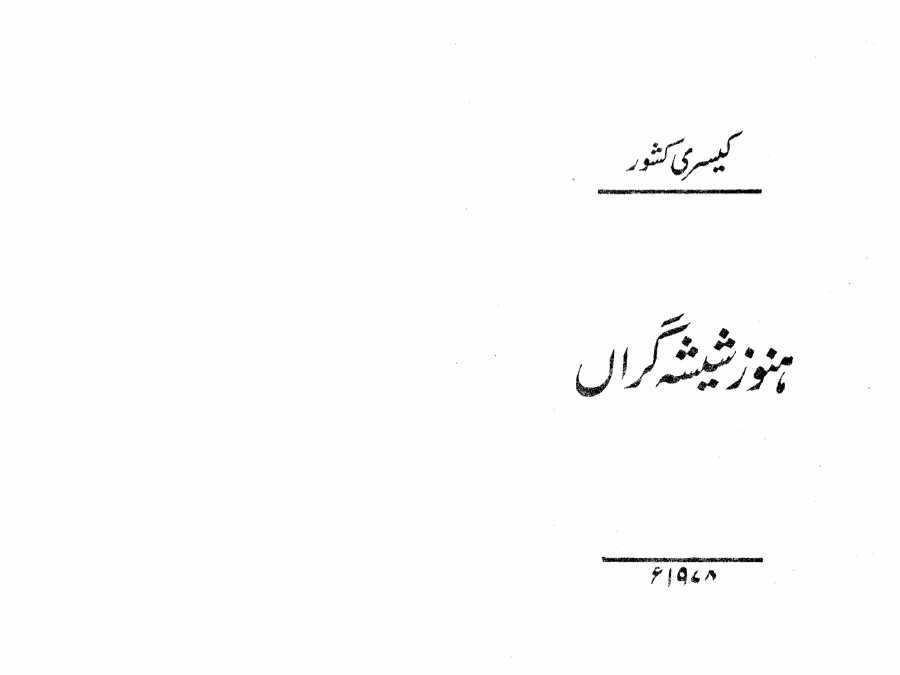 کیسری کشور
ہنوز شیشہ گراں
۱۹۷۸ء